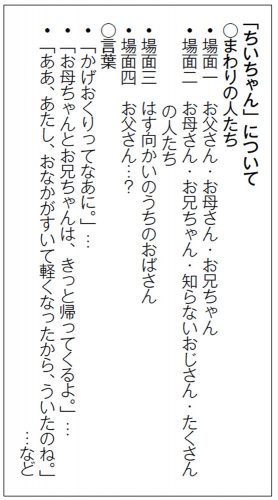 「ちいちゃん」について
○まわりの人たち
・場面一　お父さん・お母さん・お兄ちゃん
・場面二　お母さん・お兄ちゃん・知らないおじさん・たくさん
の人たち
・場面三　はす向かいのうちのおばさん
・場面四　お父さん…？
○言葉
・「かげおくりってなあに。」…
・「お母ちゃんとお兄ちゃんは、きっと帰ってくるよ。」…
・「ああ、あたし、おなかがすいて軽くなったから、ういたのね。」
…など